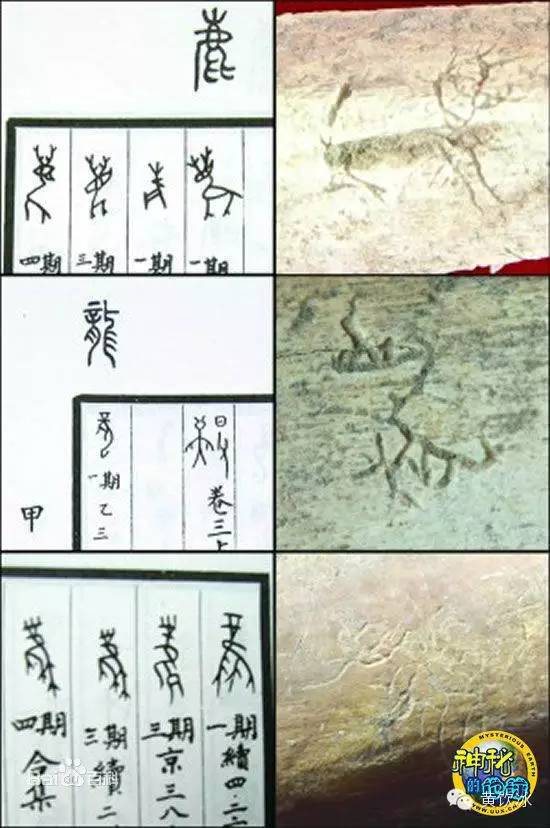 鹿
四期
三期
一期
一期
龍
一期
乙三
卷三
甲
四期
合集
三期
續二
三期
京三八
一期
續四·二
Bai百科
MYSTERIOUS EARTH
神秘的地球
WWW.UUX.CN